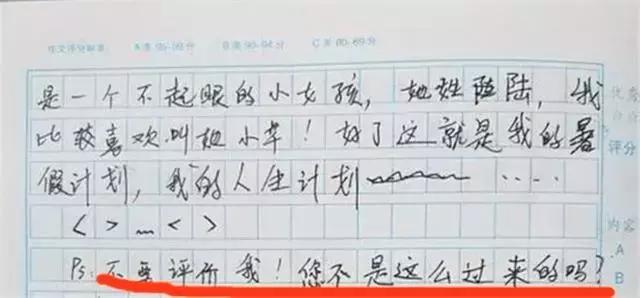 作文评分标准 A类 95-99分 B类 90-94分 C类 80-89分
是一个不起眼的小女孩，她姓陆，我
比较喜欢叫她小草！好了这就是我的暑
假计划，我的人生计划~~~ ....
< > ... < >
Ps: 不要评价我！您不是这么过来的吗？
评分
内容
A
B